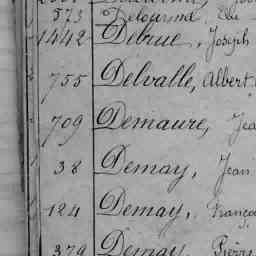 573 Delournd, Elie
1442 Debrue, Joseph
755 Delvalle, Albert
709 Demaure, Jea
38 Demay, Jean
124 Demay, Françoi
379 Demay, Pierre